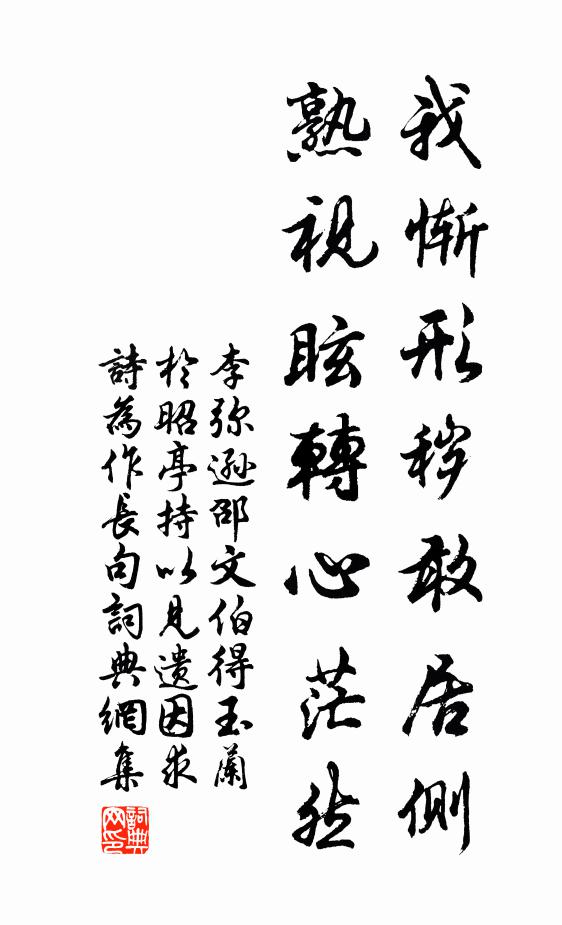 我慚形穢敢居側
熟視眩轉心茫然
李弥遜邵文伯得玉蘭
於昭亭持以見遺因求
詩為作長句詞典網集
詞典網印